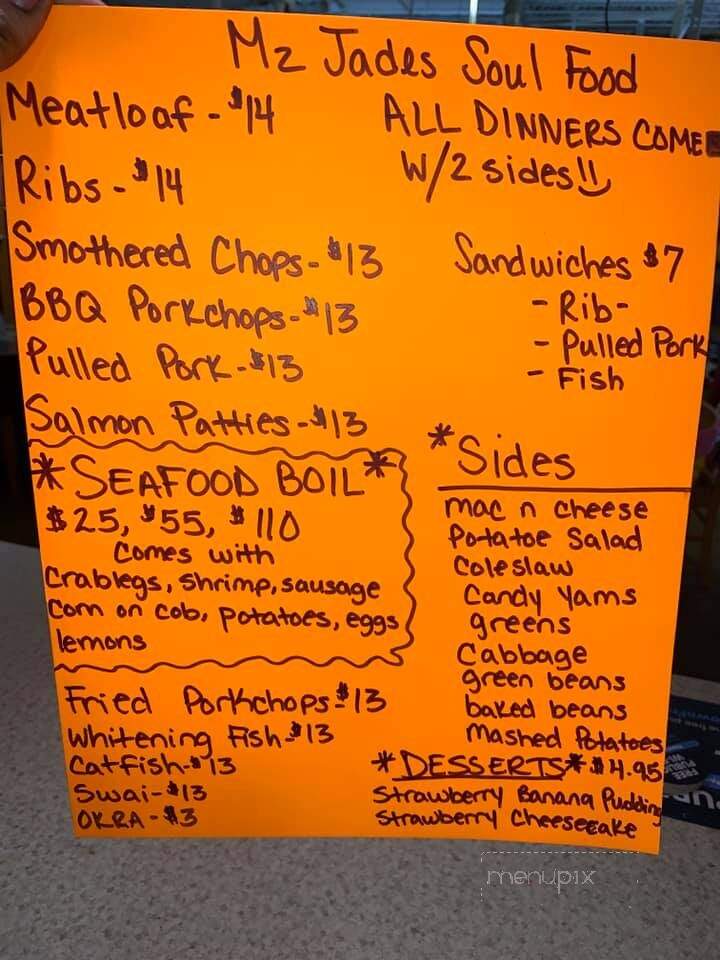 Mz Jades Soul Food
Meatloaf - $14
ALL DINNERS COME
W/2 sides!!
Ribs - $14
Smothered Chops - $13
BBQ Porkchops - $13
Pulled Pork - $13
Salmon Patties - $13
Sandwiches $7
- Rib -
- Pulled Pork
- Fish
*SEAFOOD BOIL*
$25, $55, $110
Comes with
Crablegs, shrimp, sausage
Corn on cob, potatoes, eggs
lemons
*Sides
mac n cheese
Potatoe Salad
Coleslaw
Candy Yams
greens
Cabbage
green beans
baked beans
Mashed Potatoes
Fried Porkchops - $13
Whitening Fish - $13
Catfish - $13
Swai - $13
OKRA - $3
*DESSERTS* $4.95
Strawberry Banana Pudding
Strawberry Cheesecake
menupix